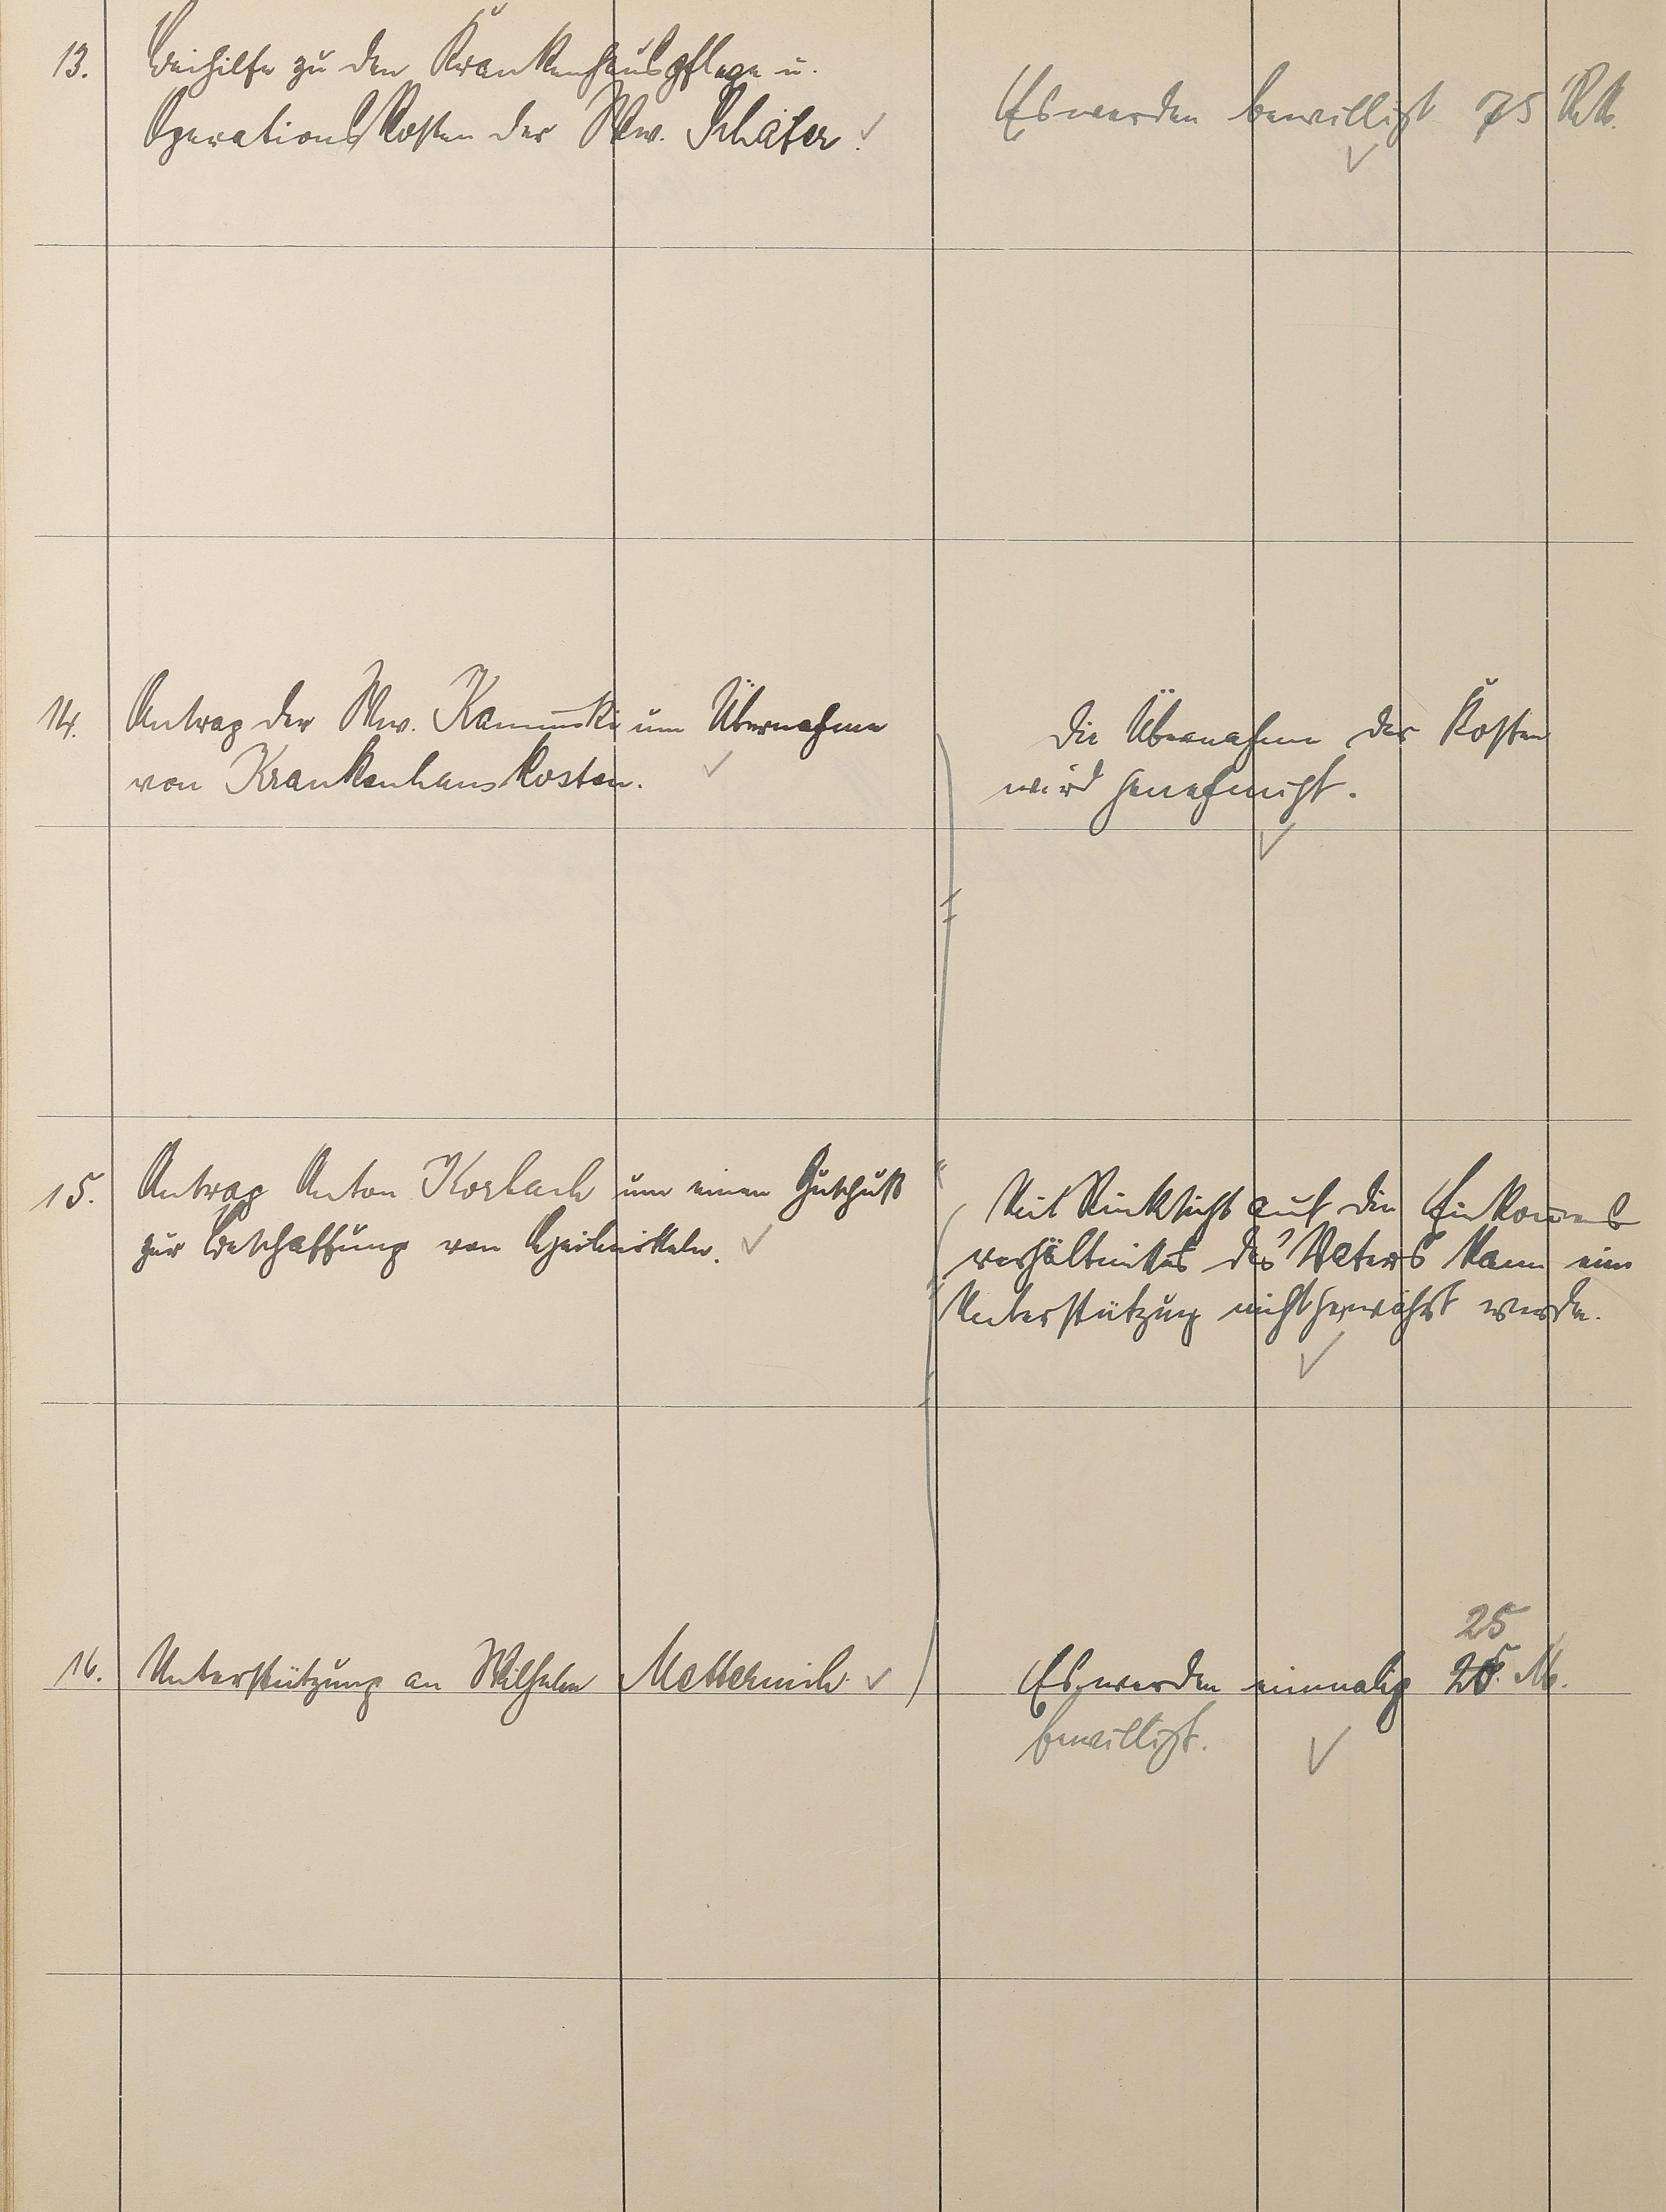 13. Beihilfe zu den Krankenhauspflege u.
Operationskosten der Ww. Schäfer.
Es werden bewilligt 75 RM.
14. Antrag der Ww. Kaminski um Übernahme
von Krankenhauskosten.
Die Übernahme der Kosten
wird genehmigt.
15. Antrag Anton Korbach um einen Zuschuß
zur Beschaffung von Heilmitteln.
Mit Rücksicht auf die Einkommens
verhältnisse des Vaters kann eine
Unterstützung nicht gewährt werden.
16. Unterstützung an Wilhelm Metternich
25
Es werden einmalig 25. M.
bewilligt.